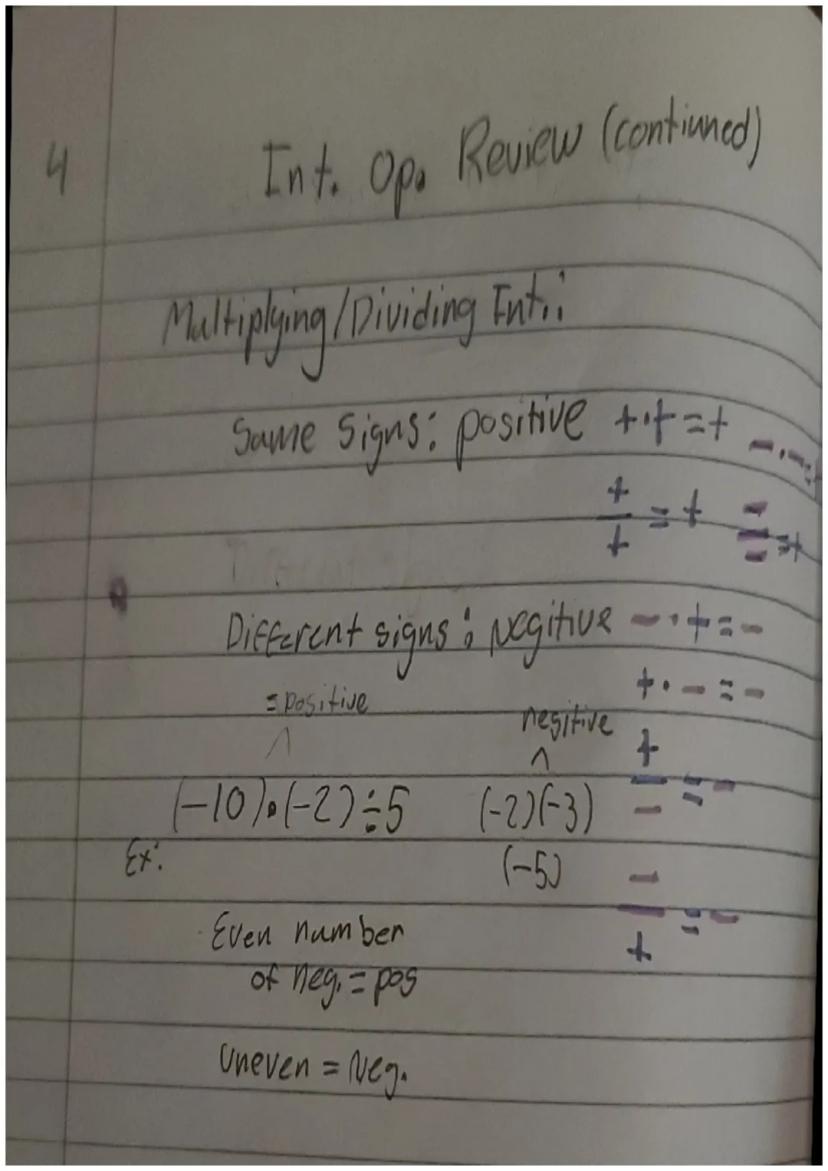 4 Int. Op. Review (contiuned)
Multiplying/Dividing Int.:
Same Signs: positive +·+=+ -·-=+
+/+ = + -/- =+
Different signs: Negitive -·+=-
+·-=-
=positive negitive
^ ^
+/- = -
(-10)·(-2)÷5 (-2)(-3)
Ex: (-5)
-/+ = -
Even number
of neg.=pos
uneven = Neg.